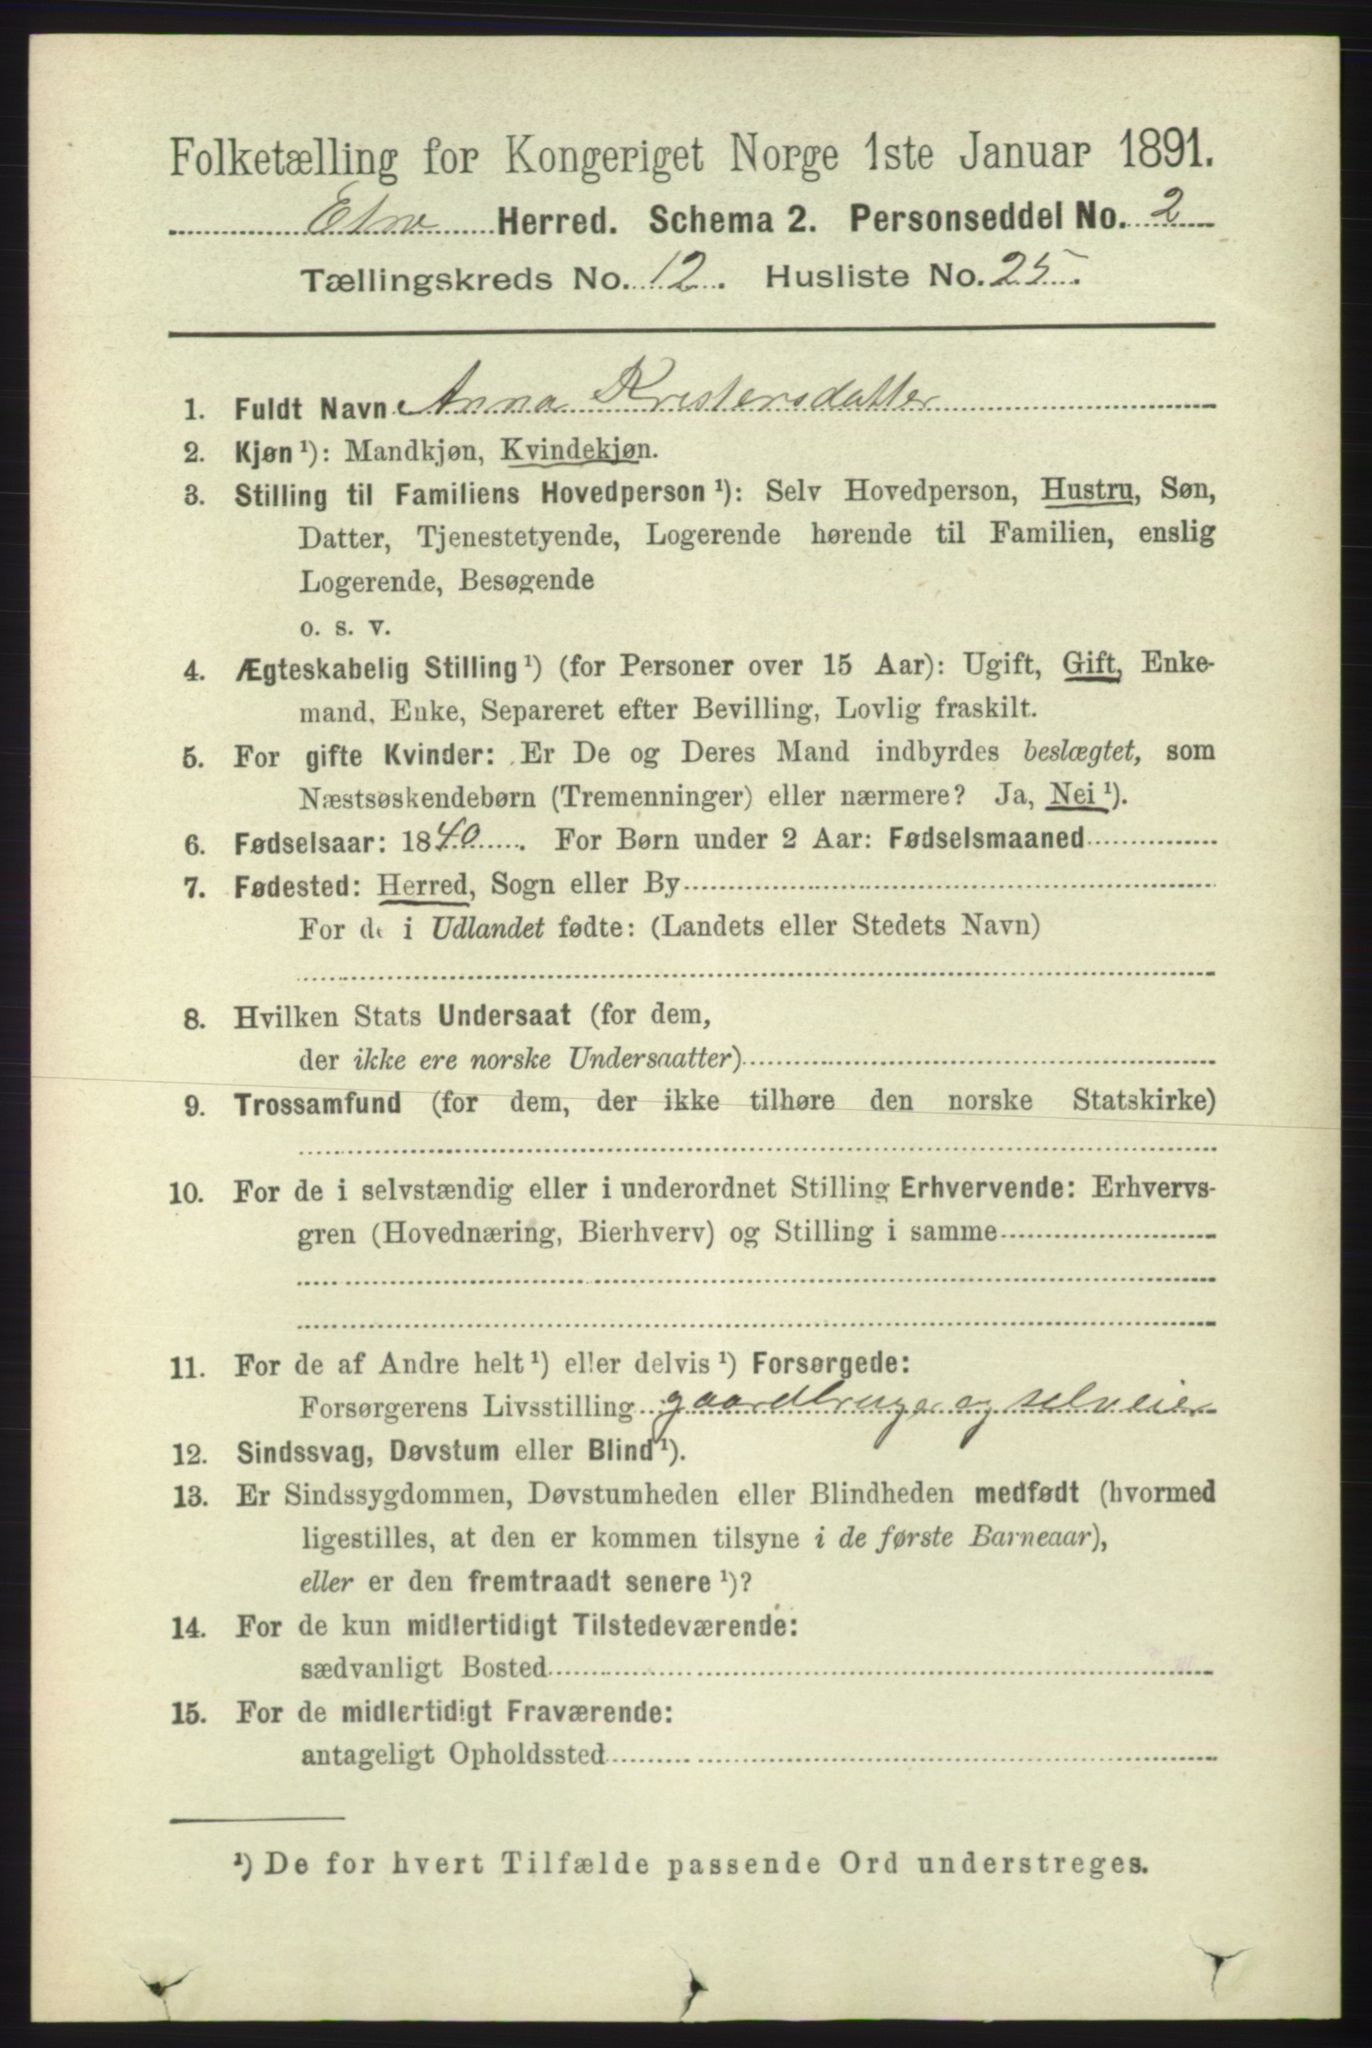 Folketælling for Kongeriget Norge 1ste Januar 1891.
Etne Herred. Schema 2. Personseddel No. 2
Tællingskreds No. 12. Husliste No. 25.
1. Fuldt Navn Anna Kristensdatter
2. Kjøn¹): Mandkjøn, Kvindekjøn.
3. Stilling til Familiens Hovedperson¹): Selv Hovedperson, Hustru, Søn,
Datter, Tjenestetyende, Logerende hørende til Familien, enslig
Logerende, Besøgende
o. s. v.
4. Ægteskabelig Stilling¹) (for Personer over 15 Aar): Ugift, Gift, Enke-
mand, Enke, Separeret efter Bevilling, Lovlig fraskilt.
5. For gifte Kvinder: Er De og Deres Mand indbyrdes beslægtet, som
Næstsøskendebørn (Tremenninger) eller nærmere? Ja, Nei¹).
6. Fødselsaar: 1840. For Børn under 2 Aar: Fødselsmaaned
7. Fødested: Herred, Sogn eller By
For de i Udlandet fødte: (Landets eller Stedets Navn)
8. Hvilken Stats Undersaat (for dem,
der ikke ere norske Undersaatter)
9. Trossamfund (for dem, der ikke tilhøre den norske Statskirke)
10. For de i selvstændig eller i underordnet Stilling Erhvervende: Erhvervs-
gren (Hovednæring, Bierhverv) og Stilling i samme
11. For de af Andre helt¹) eller delvis¹) Forsørgede:
Forsørgerens Livsstilling gaardbruger og selveier
12. Sindssvag, Døvstum eller Blind¹).
13. Er Sindssygdommen, Døvstumheden eller Blindheden medfødt (hvormed
ligestilles, at den er kommen tilsyne i de første Barneaar),
eller er den fremtraadt senere¹)?
14. For de kun midlertidigt Tilstedeværende:
sædvanligt Bosted
15. For de midlertidigt Fraværende:
antageligt Opholdssted
¹) De for hvert Tilfælde passende Ord understreges.